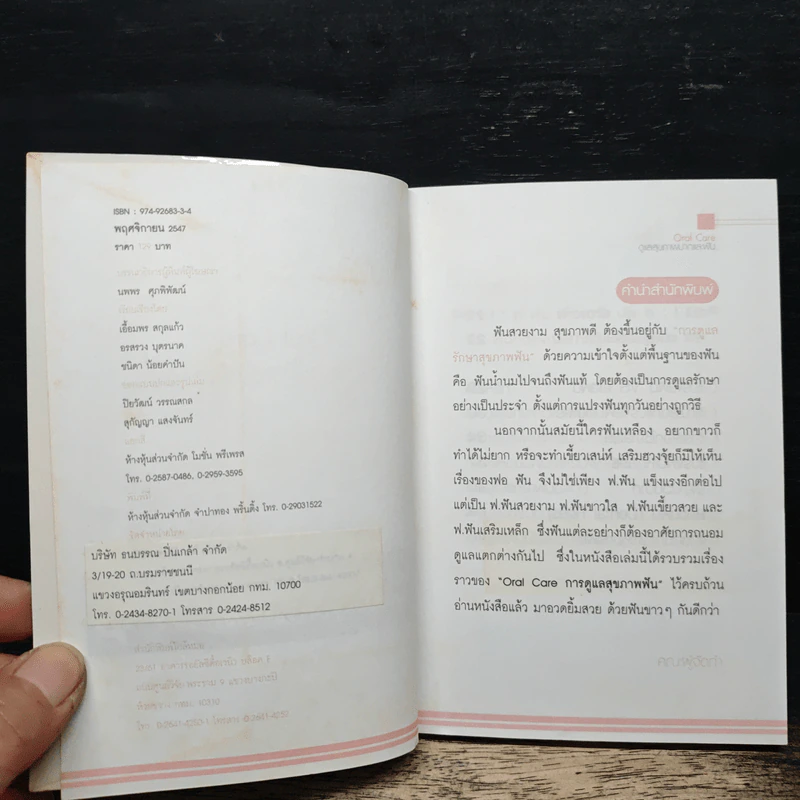 ISBN : 974-92683-3-4
พฤศจิกายน 2547
ราคา บาท
นพพร ศุภพิพัฒน์
เอื้อมพร สกุลแก้ว
อรสรวง บุตรนาค
ชนิดา น้อยคำปัน
ปิยวัฒน์ วรรณสกล
สุกัญญา แสงจันทร์
ห้างหุ้นส่วนจำกัด โมชั่น พรีเพรส
โทร. 0-2587-0486, 0-2959-3595
พิมพ์ที่
ห้างหุ้นส่วนจำกัด จำปาทอง พริ้นติ้ง โทร. 0-29031522
บริษัท ธนบรรณ ปิ่นเกล้า จำกัด
3/19-20 ถ.บรมราชชนนี
แขวงอรุณอมรินทร์ เขตบางกอกน้อย กทม. 10700
โทร. 0-2434-8270-1 โทรสาร 0-2424-8512
Oral Care
ดูแลสุขภาพปากและฟัน
คำนำสำนักพิมพ์
ฟันสวยงาม สุขภาพดี ต้องขึ้นอยู่กับ "การดูแล
รักษาสุขภาพฟัน" ด้วยความเข้าใจตั้งแต่พื้นฐานของฟัน
คือ ฟันน้ำนมไปจนถึงฟันแท้ โดยต้องเป็นการดูแลรักษา
อย่างเป็นประจำ ตั้งแต่การแปรงฟันทุกวันอย่างถูกวิธี
นอกจากนั้นสมัยนี้ใครฟันเหลือง อยากขาวก็
ทำได้ไม่ยาก หรือจะทำเขี้ยวเสน่ห์ เสริมฮวงจุ้ยก็มีให้เห็น
เรื่องของฟอ ฟัน จึงไม่ใช่เพียง ฟ.ฟัน แข็งแรงอีกต่อไป
แต่เป็น ฟ.ฟันสวยงาม ฟ.ฟันขาวใส ฟ.ฟันเขี้ยวสวย และ
ฟ.ฟันเสริมเหล็ก ซึ่งฟันแต่ละอย่างก็ต้องอาศัยการถนอม
ดูแลแตกต่างกันไป ซึ่งในหนังสือเล่มนี้ได้รวบรวมเรื่อง
ราวของ "Oral Care การดูแลสุขภาพฟัน" ไว้ครบถ้วน
อ่านหนังสือแล้ว มาอวดยิ้มสวย ด้วยฟันขาวๆ กันดีกว่า
คณะผู้จัดทำ